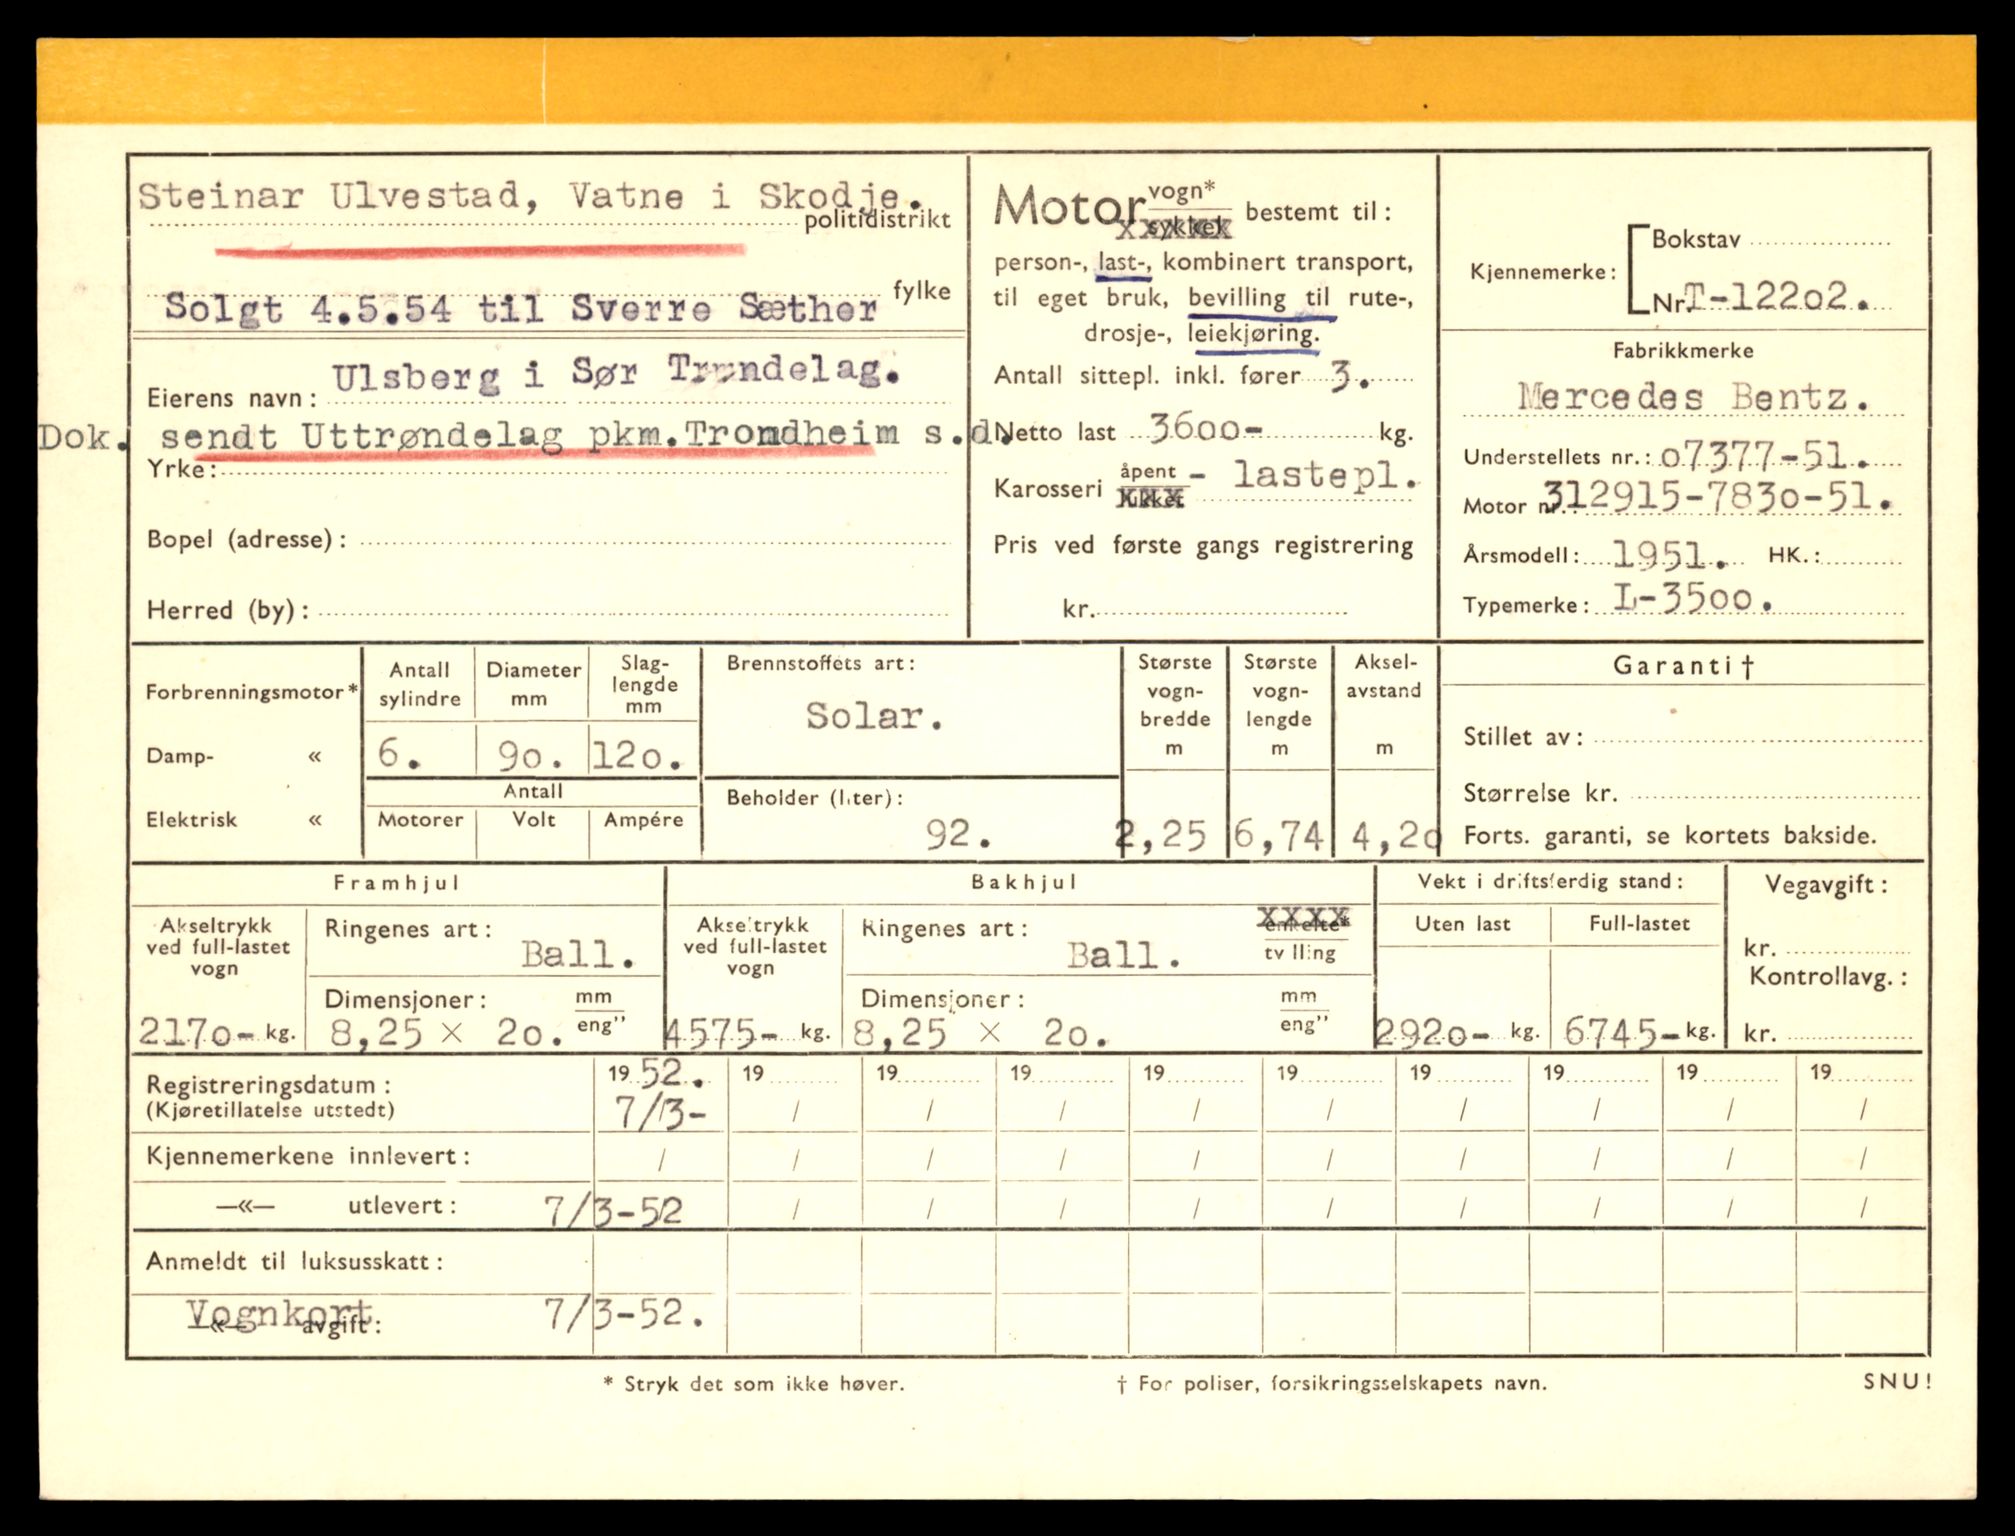 Steinar Ulvestad, Vatne i Skodje.
politidistrikt
fylke
Solgt 4.5.54 til Sverre Sæther
Ulsberg i Sør Trøndelag.
Eierens navn:
Dok. sendt Uttrøndelag pkm.Trondheim s.d.
Yrke:
Bopel (adresse):
Herred (by):
Motor vogn*
sykkel bestemt til:
person-, last-, kombinert transport,
til eget bruk, bevilling til rute-,
drosje-, leiekjøring.
Antall sittepl. inkl. fører 3.
Netto last 3600- kg.
Karosseri åpent - lastepl.
lukket
Pris ved første gangs registrering
kr.
Kjennemerke: Bokstav
Nr. T-12202.
Fabrikkmerke
Mercedes Bentz.
Understellets nr.: 07377-51.
Motor nr.: 312915-7830-51.
Årsmodell: 1951. HK.:
Typemerke: L-3500.
Forbrenningsmotor*
Damp- «
Elektrisk «
Antall sylindre
Diameter mm
Slag-lengde mm
6. 90. 120.
Antall
Motorer Volt Ampére
Brennstoffets art:
Solar.
Beholder (liter):
92.
Største vogn-bredde m
Største vogn-lengde m
Aksel-avstand m
2,25 6,74 4,20
Garanti †
Stillet av:
Størrelse kr.
Forts. garanti, se kortets bakside.
Framhjul
Akseltrykk ved full-lastet vogn
2170- kg.
Ringenes art:
Ball.
Dimensjoner: mm
eng”
8,25 × 20.
Bakhjul
Akseltrykk ved full-lastet vogn
4575- kg.
Ringenes art: enkelte*
tvilling
Ball.
Dimensjoner: mm
eng”
8,25 × 20.
Vekt i driftsferdig stand:
Uten last Full-lastet
2920- kg. 6745- kg.
Vegavgift:
kr.
Kontrollavg.:
kr.
Registreringsdatum: 19 52. 19 19 19 19 19 19 19 19 19
(Kjøretillatelse utstedt) 7/3- / / / / / / / / /
Kjennemerkene innlevert: / / / / / / / / / /
—«— utlevert: 7/3-52 / / / / / / / / /
Anmeldt til luksusskatt:
Vognkort 7/3-52.
—«— avgift:
* Stryk det som ikke høver. † For poliser, forsikringsselskapets navn. SNU!